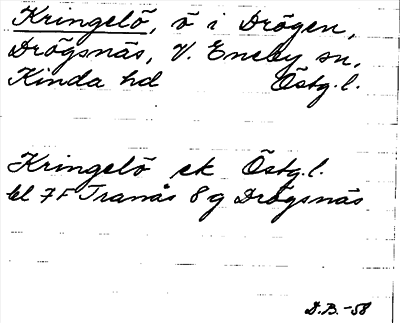 Kringelö, ö i Drögen,
Drögsnäs, V. Eneby sn,
Kinda hd Östg.l.
Kringelö ek Östg.l.
bl 7F Tranås 8 g Drögsnäs
D.B.-58